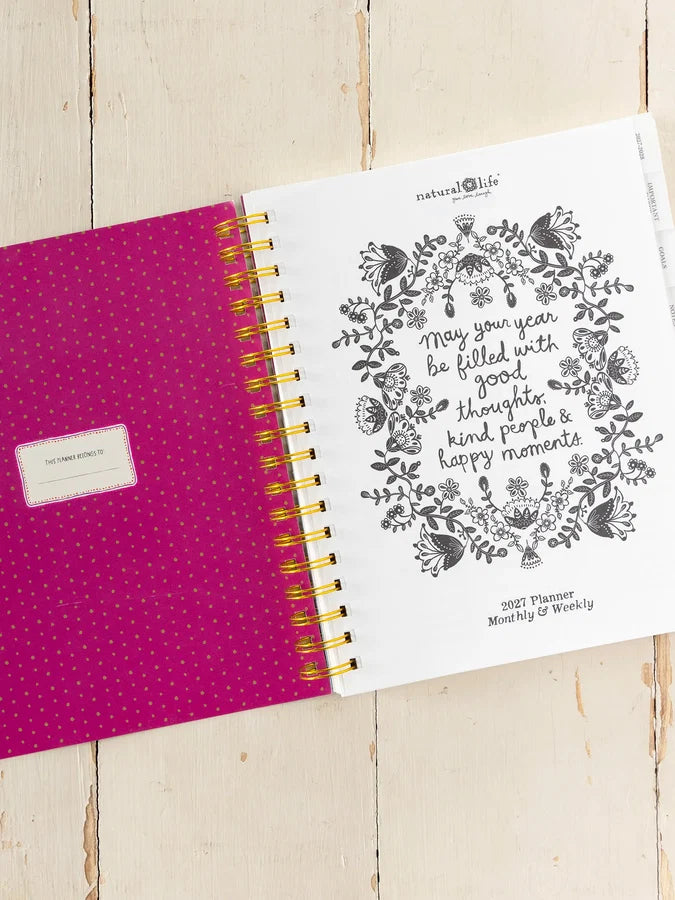 THIS PLANNER BELONGS TO:
natural life
May your year
be filled with
good
thoughts,
kind people &
happy moments.
2027 Planner
Monthly & Weekly
2027-2028
IMPORTANT
GOALS